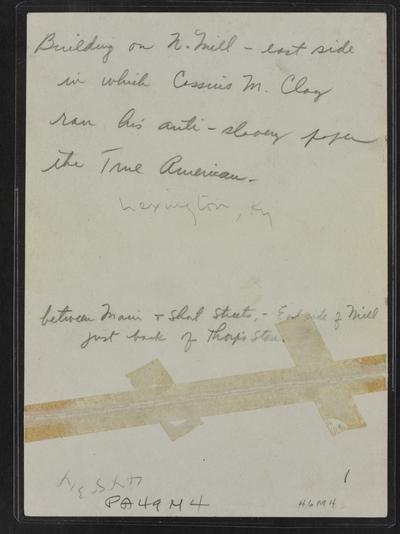 Building on N. Mill - east side
in which Cassius M. Clay
ran his anti-slavery paper
the True American -
Lexington, Ky
between Main + Short Streets, - East side of Mill
just back of Thorp's Store.
PA49M4
46M4
1